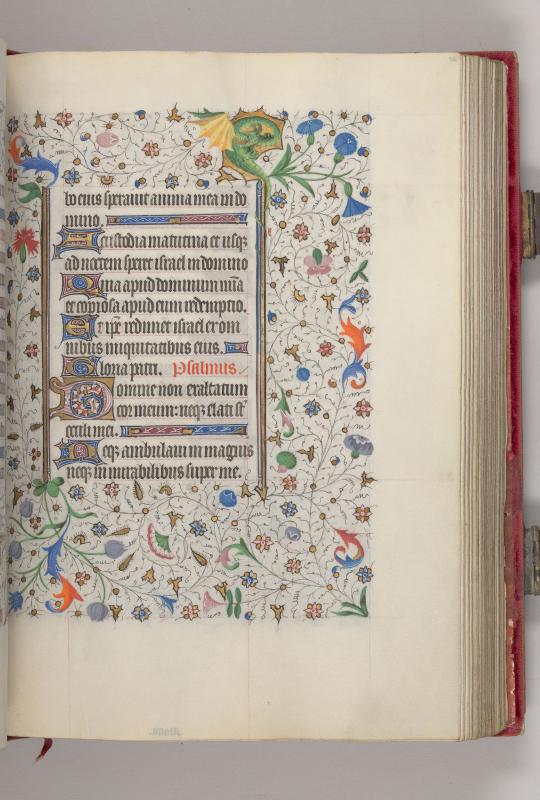 bo eius sperauit anima mea in do
mino.
A custodia matutina et usqȝ
ad noctem speret israel in domino
Quia apud dominum mīa
et copiosa apud eum redemptio.
Et ip̄e redimet israel ex om
nibus iniquitatibus eius.
Gloria patri. Psalmus.
Domine non exaltatum
cor meum: neqȝ elati st̄
oculi mei.
Neqȝ ambulaui in magnis
neqȝ in mirabilibus super me.